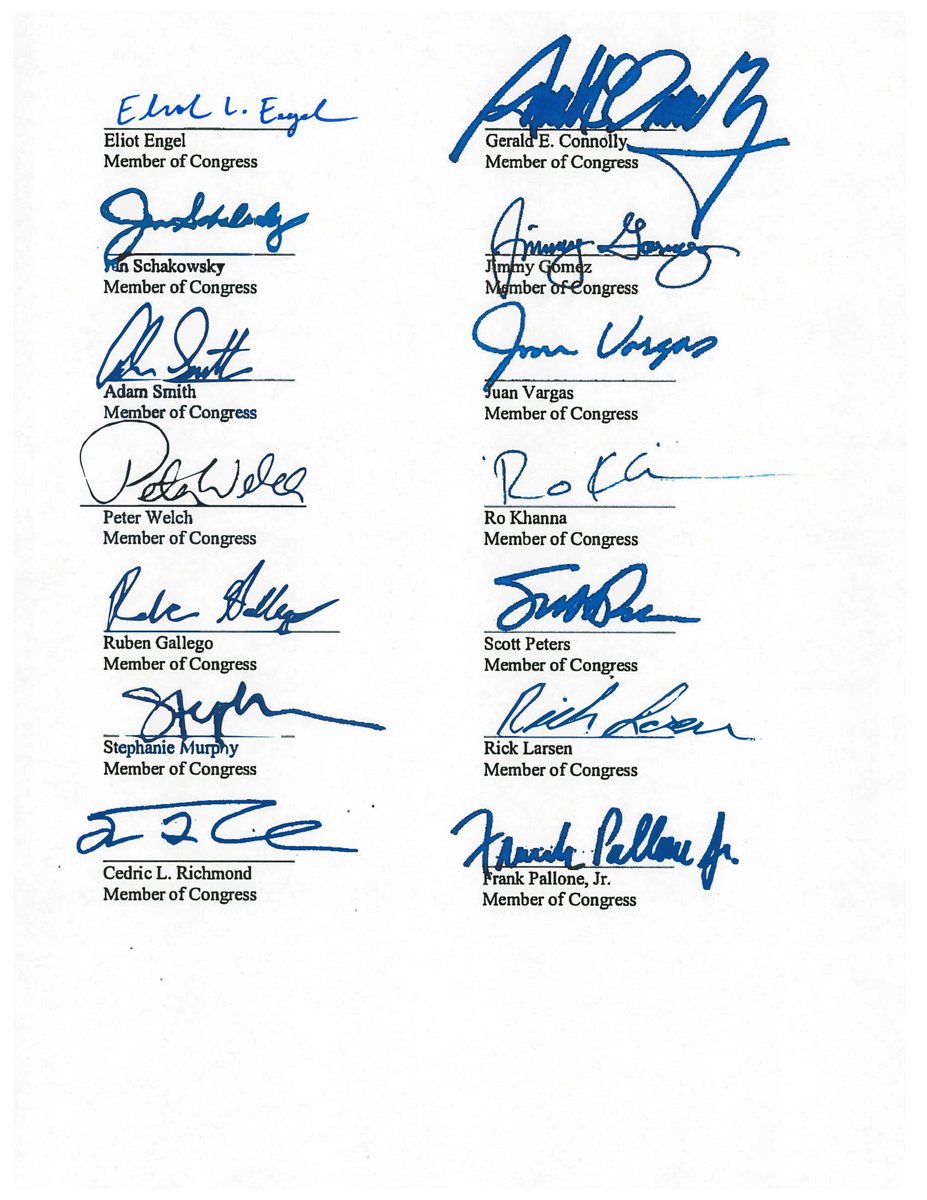 Eliot L. Engel
Eliot Engel
Member of Congress
Gerald E. Connolly
Member of Congress
Jan Schakowsky
Jan Schakowsky
Member of Congress
Jimmy Gomez
Jimmy Gomez
Member of Congress
Adam Smith
Adam Smith
Member of Congress
Juan Vargas
Juan Vargas
Member of Congress
Peter Welch
Peter Welch
Member of Congress
Ro Khanna
Member of Congress
Ruben Gallego
Ruben Gallego
Member of Congress
Scott Peters
Member of Congress
Steph
Stephanie Murphy
Member of Congress
Rick Larsen
Rick Larsen
Member of Congress
Cedric L. Richmond
Member of Congress
Frank Pallone Jr.
Frank Pallone, Jr.
Member of Congress